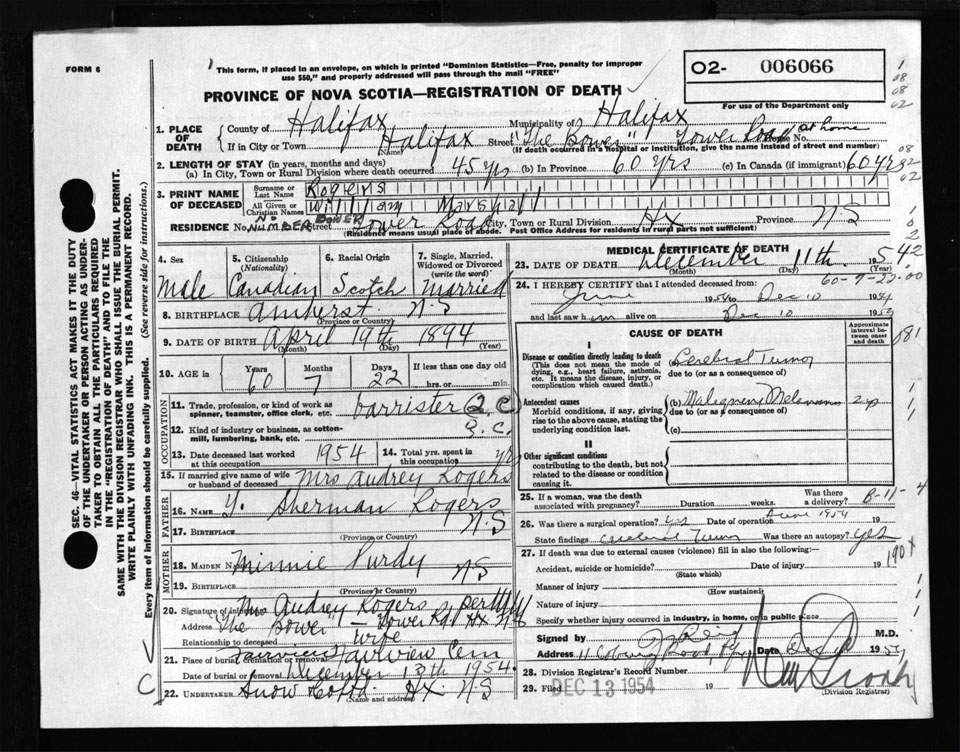 FORM 6
This form, if placed in an envelope, on which is printed "Dominion Statistics—Free, penalty for improper
use $50," and properly addressed will pass through the mail "FREE"
O2- 006066
For use of the Department only
PROVINCE OF NOVA SCOTIA—REGISTRATION OF DEATH
SEC. 46—VITAL STATISTICS ACT MAKES IT THE DUTY
OF THE UNDERTAKER OR PERSON ACTING AS UNDER-
TAKER TO OBTAIN ALL THE PARTICULARS REQUIRED
IN THE "REGISTRATION OF DEATH" AND TO FILE THE
SAME WITH THE DIVISION REGISTRAR WHO SHALL ISSUE THE BURIAL PERMIT.
WRITE PLAINLY WITH UNFADING INK. THIS IS A PERMANENT RECORD.
Every item of information should be carefully supplied. (See reverse side for instructions.)
1. PLACE OF DEATH County of Halifax Municipality of Halifax
If in City or Town Halifax (Name) Street "The Bower" Tower Road House No. at home
(If death occurred in a hospital or institution, give the name instead of street and number)
2. LENGTH OF STAY (in years, months and days)
(a) In City, Town or Rural Division where death occurred 45 yrs (b) In Province 60 yrs (c) In Canada (if immigrant) 60 yrs
3. PRINT NAME OF DECEASED Surname or Last Name Rogers
All Given or Christian Names William Marshall
RESIDENCE No. No NUMBER Street BOWER Tower Road City, Town or Rural Division Hx Province N S
(Residence means usual place of abode. Post Office Address for residents in rural parts not sufficient)
4. Sex Male
5. Citizenship (Nationality) Canadian
6. Racial Origin Scotch
7. Single, Married, Widowed or Divorced (write the word) Married
8. BIRTHPLACE Amherst N S
(Province or Country)
9. DATE OF BIRTH April 19th 1894
(Month) (Day) (Year)
10. AGE in Years 60 Months 7 Days 22 If less than one day old hrs. or min.
OCCUPATION
11. Trade, profession, or kind of work as spinner, teamster, office clerk, etc. barrister Q.C.
12. Kind of industry or business, as cotton-mill, lumbering, bank, etc. Q.C.
13. Date deceased last worked at this occupation 1954
14. Total yrs. spent in this occupation yrs
15. If married give name of wife or husband of deceased Mrs Audrey Rogers
FATHER
16. Name Sherman Rogers
17. Birthplace N.S
(Province or Country)
MOTHER
18. MAIDEN Name Minnie Purdy
19. BIRTHPLACE N S
(Province or Country)
20. Signature of informant Mrs Audrey Rogers per
Address "The Bower" — Tower Rd. Hx N S
Relationship to deceased wife
21. Place of burial, cremation or removal Fairview Cem
Date of burial or removal December 13th 1954
22. UNDERTAKER Snow Co Ltd. Hx. N S
(Name and address)
MEDICAL CERTIFICATE OF DEATH
23. DATE OF DEATH December 11th 1954
(Month) (Day) (Year)
24. I HEREBY CERTIFY that I attended deceased from:
June 1954 to Dec 10 1954
and last saw him alive on Dec 10 1953
60-7-22-00
CAUSE OF DEATH
Approximate interval between onset and death
I
Disease or condition directly leading to death
(This does not mean the mode of dying, e.g., heart failure, asthenia, etc. It means the disease, injury, or complication which caused death.)
Cerebral Tumor
due to (or as a consequence of)
Antecedent causes
Morbid conditions, if any, giving rise to the above cause, stating the underlying condition last.
(b) Malignant Melanoma
due to (or as a consequence of)
(c)
II
Other significant conditions
contributing to the death, but not related to the disease or condition causing it.
25. If a woman, was the death associated with pregnancy? Duration weeks. Was there a delivery?
B-11-4
26. Was there a surgical operation? yes Date of operation June 1954 19
State findings Cerebral Tumor Was there an autopsy? yes
27. If death was due to external causes (violence) fill in also the following:—
Accident, suicide or homicide? Date of injury 19
(State which)
Manner of injury
(How sustained)
Nature of injury
Specify whether injury occurred in industry, in home, or in public place
Signed by M.D.
Address Coburg Road, Date Dec
28. Division Registrar's Record Number
29. Filed DEC 13 1954 19
(Division Registrar)